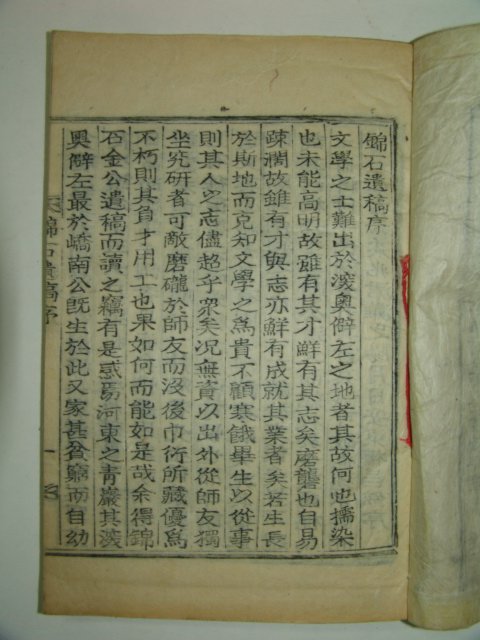 錦石遺稿序
文學之士難出於深奧僻左之地者其故何也擩染
也未能高明故雖有其才鮮有其志矣磨礱也自易
疎濶故雖有才與志亦鮮有成就其業者矣若生長
於斯地而克知文學之爲貴不顧寒餓畢生以從事
則其人之志儘超乎衆矣况無資以出外從師友獨
坐究硏者可敵磨礲於師友而沒後巾衍所藏優爲
不朽則其負才用工也果如何而能如是哉余得錦
石金公遺稿而讀之竊有是惑焉河東之靑巖其深
奧僻左最於嶠南公旣生於此又家甚貧窮而自幼
錦石遺稿序
一